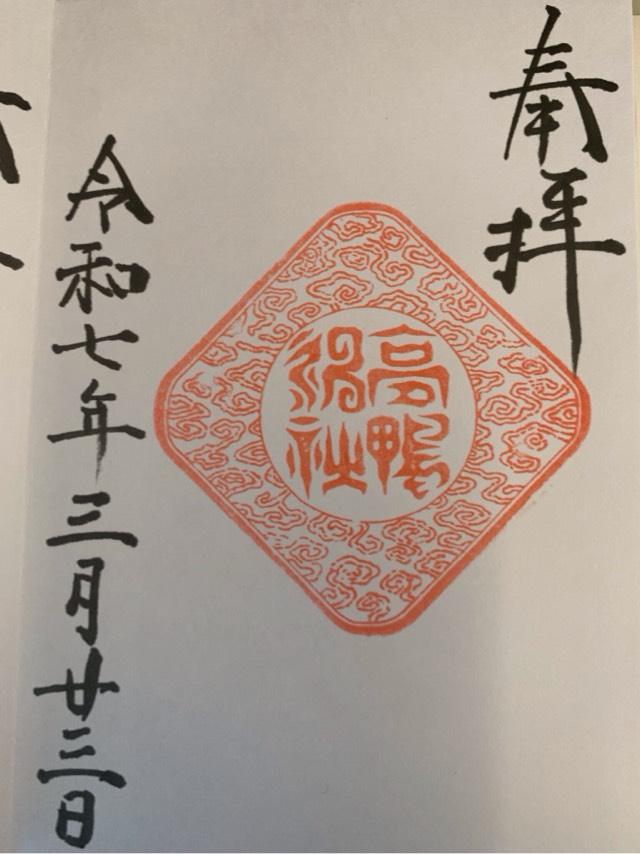 奉拝
高鴨
神社
令和七年三月廿三日